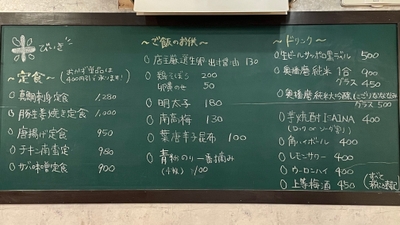 ぴいぎ
〜定食〜
(おかず単品は
400円引き承ります)
○真鯛刺身定食 1,280
○豚生姜焼き定食 1,000
○唐揚げ定食 950
○チキン南蛮定食 980
○サバ味噌定食 900
〜ご飯のお供〜
○店主厳選生卵 出汁醤油 130
○鶏そぼろ 200
卵黄のせ 50
○明太子 180
○南高梅 130
○葉唐辛子昆布 100
○青粉のり一番摘み
(小鉢) 100
〜ドリンク〜
○生ビールサッポロ黒ラベル 500
○奥播磨純米 1合 900
グラス 450
○奥播磨純米大吟醸
グラス 500
○芋焼酎ISAINA 400
(ロック or ソーダ割り)
○角ハイボール 400
○レモンサワー 400
○ウーロンハイ 400
○上等梅酒 450